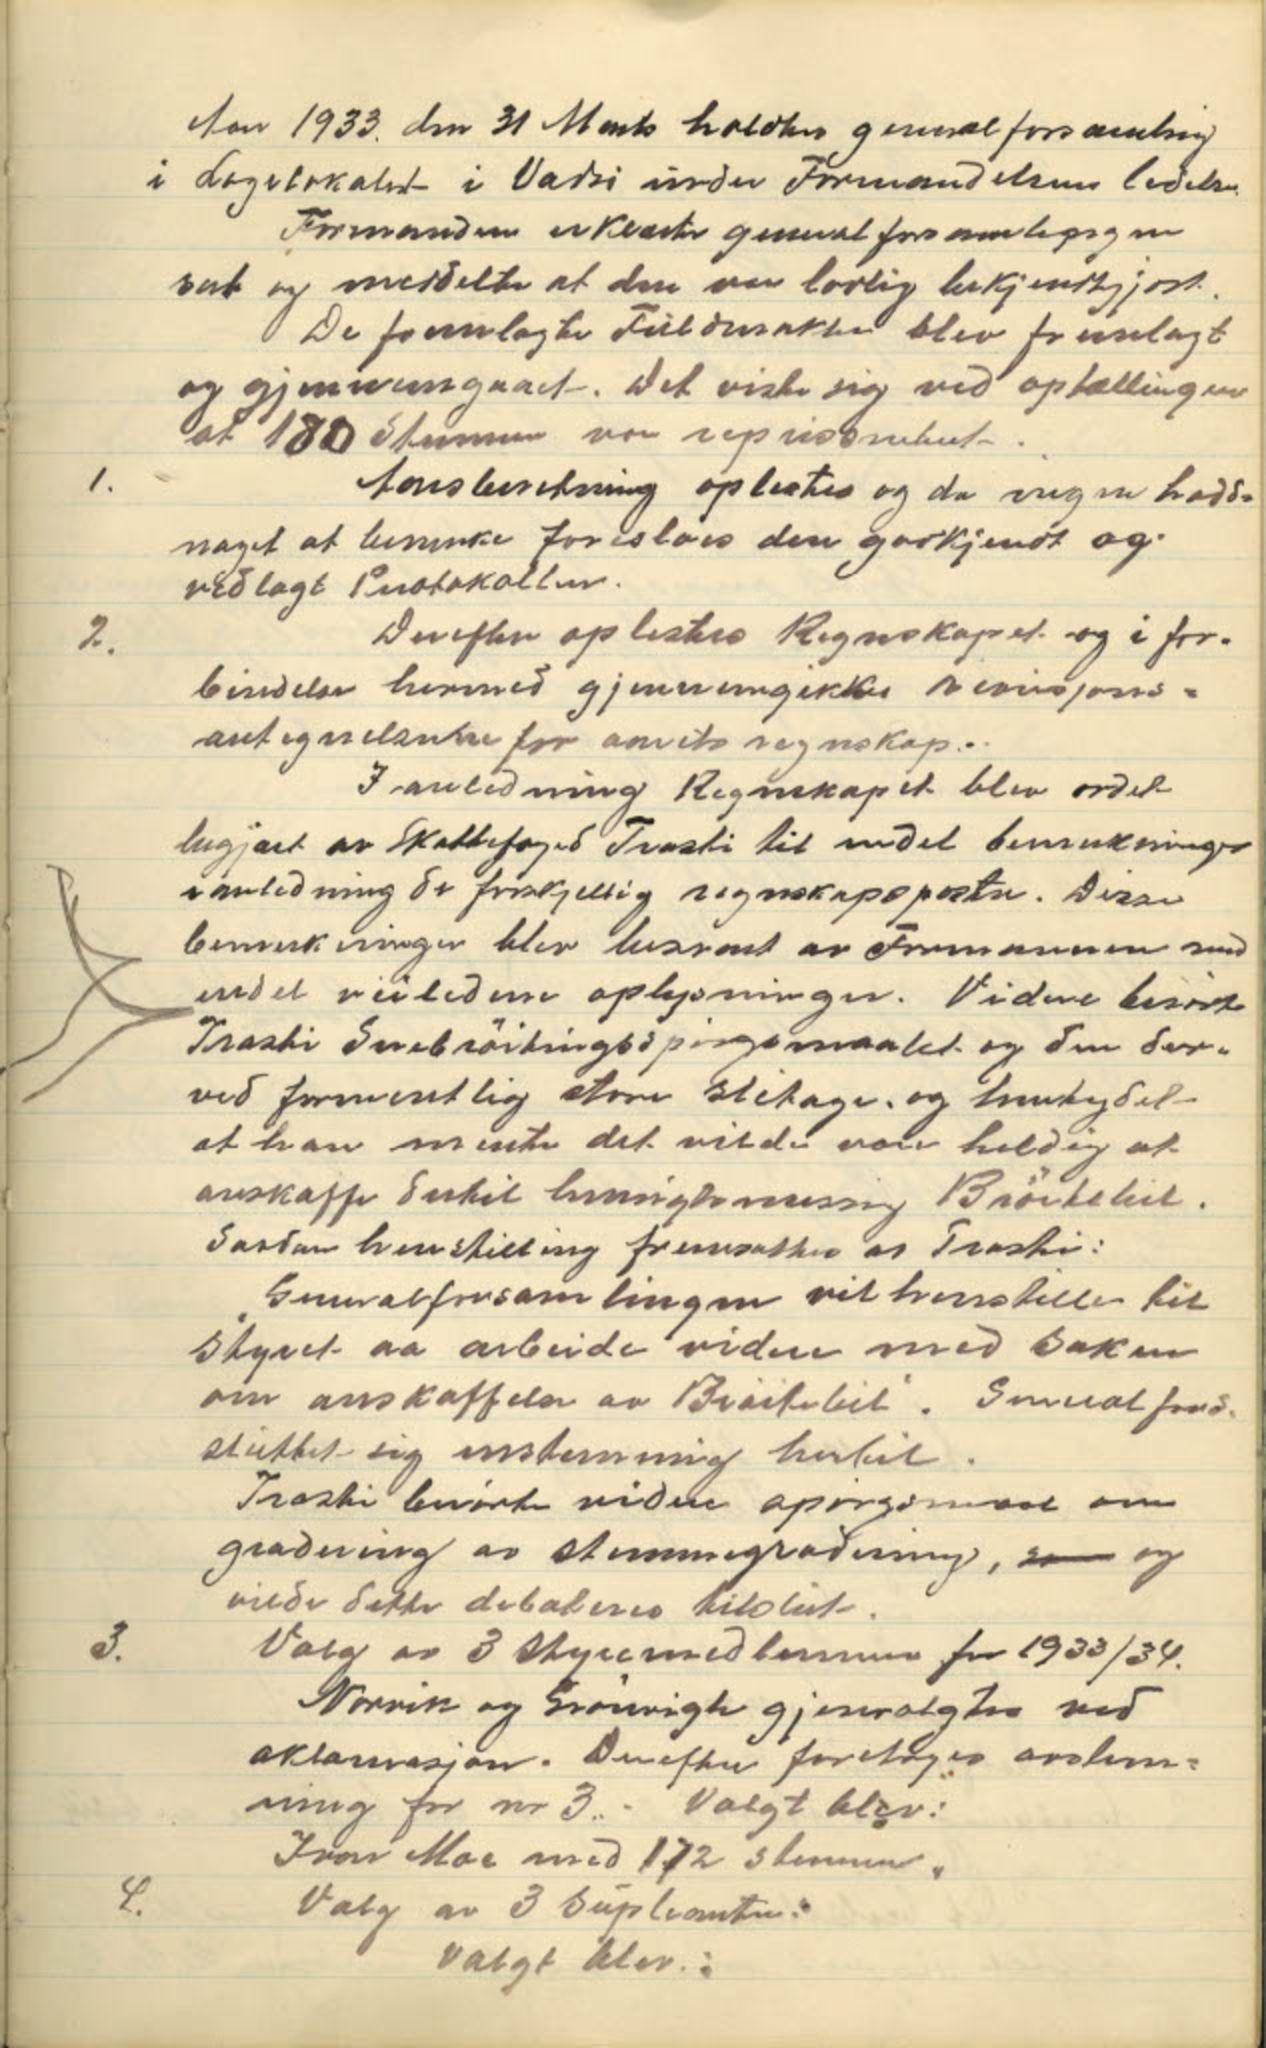 Aar 1933. den 31 Marts holdtes generalforsamling
i Logelokalet i Vadsö under Formandens ledelse.
Formanden erklærte generalforsamlegsgen
sat og meddelte at den var lovlig bekjendtgjort.
De fremlagte Fuldmakter blev fremlagt
og gjennemgaaet. Det viste sig ved optællingen
at 180 Stemmer var represenetert.
1. Aarsberetning oplæstes og da ingen hadde
noget at bemerke foresloes den godkjendt og
vedlagt Protokollen.
2. Derefter oplæstes Regnskapet og i for-
bindelse hermed gjennemgikkes revisjons-
antegnelserne for aarets regnskap.
I anledning Regnskapet blev ordet
begjært av Skattefoged Trasti til endel bemerkninger
i anledning de forskjellig regnskapsposter. Disse
bemerkninger blev besvart av Formannen med
endel veiledene oplysninger. Videre berörte
Trasti Snebröitningsspörgsmaalet og den der-
ved formentlig store slitage. og henstydet
at han mente det vilde vær heldig at
anskaffe dertil hensigtsmessig Bröitebil.
Saadan henstilling fremsattes av Trasti:
"Generalforsamlingen vil henstille til
Styret aa arbeide videre med saken
om anskaffelse av Bröitebil". Generalfors.
sluttet sig enstemmig hertil.
Trasti berörte videre spörgsmaal om
gradering av stemmegradering, og
vilde dette debateres tilslut.
3. Valg av 3 Styremedlemmer for 1933/34.
Norvik og Grönvigh gjenvalgtes ved
aklamasjon. Derefter foretoges avstem-
ning for nr 3. - Valgt blev:
Ivar Moe med 172 stemmer.
4. Valg av 3 Supleanter:
Valgt blev: